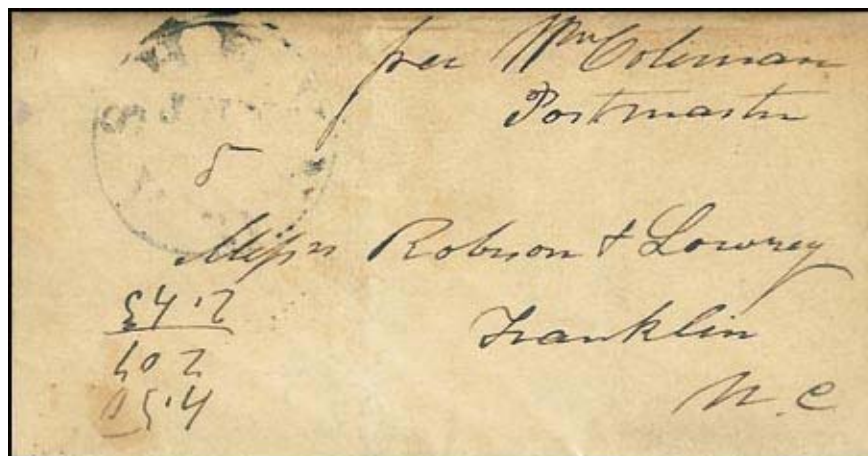 free Wm Coleman
Postmaster
5
Messrs Robson & Lowrey
Franklin
N. C
4.50
2 07
2.43